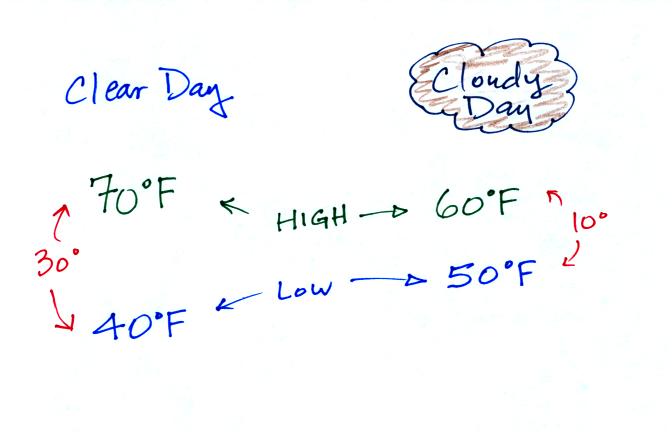 Clear Day
Cloudy
Day
70°F
HIGH
60°F
30°
10°
40°F
LOW
50°F